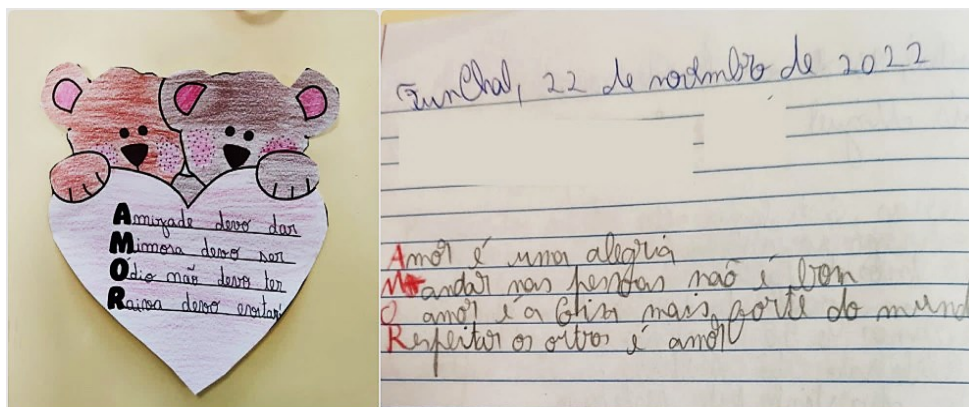 Amizade devo dar
Mimosa devo ser
Ódio não devo ter
Raiva devo evitar!
Funchal, 22 de novembro de 2022
Amor é uma alegria
Mandar nas pessoas não é bom
O amor é a coisa mais forte do mund
Respeitar os outros é amor